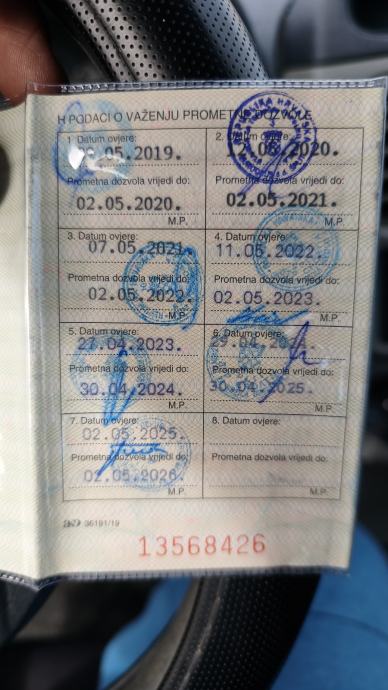 H PODACI O VAŽENJU PROMETNE DOZVOLE
1. Datum ovjere:
.05.2019.
Prometna dozvola vrijedi do:
02.05.2020.
M.P.
2. Datum ovjere:
.2020.
Prometna dozvola vrijedi do:
02.05.2021.
M.P.
3. Datum ovjere:
07.05.2021.
Prometna dozvola vrijedi do:
02.05.2022.
M.P.
4. Datum ovjere:
11.05.2022.
Prometna dozvola vrijedi do:
02.05.2023.
M.P.
5. Datum ovjere:
27.04.2023.
Prometna dozvola vrijedi do:
30.04.2024.
M.P.
6. Datum ovjere:
29.04.2024.
Prometna dozvola vrijedi do:
30.04.2025.
M.P.
7. Datum ovjere:
02.05.2025.
Prometna dozvola vrijedi do:
02.05.2026.
M.P.
8. Datum ovjere:
Prometna dozvola vrijedi do:
M.P.
36191/19
13568426